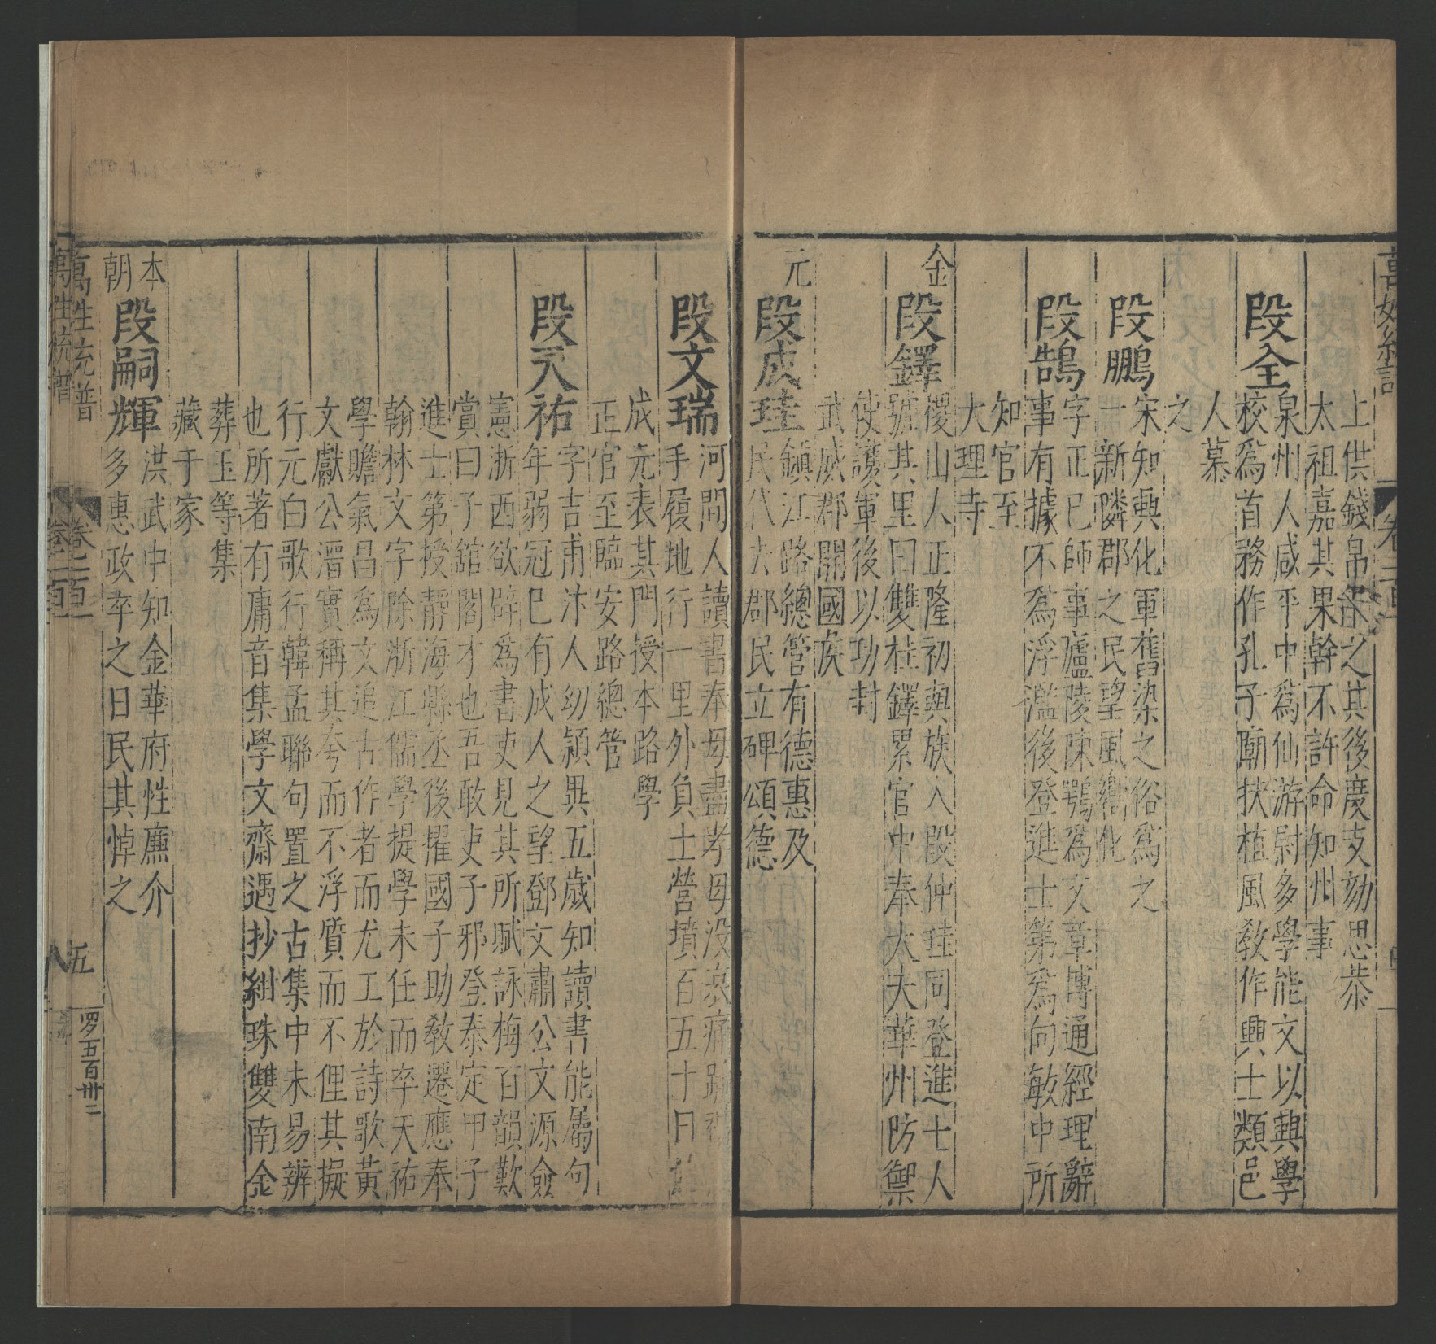 上供錢帛羅之其後度支劾思恭
太祖嘉其果幹不許命知州事
段全
泉州人咸平中爲仙游尉多學能文以興學
校爲首務作孔子廟扶植風敎作興士類邑
人慕
之
段鵬
宋知興化軍舊染之俗爲之
一新隣郡之民望風嚮化
段鵠
字正巳師事廬陵陳鶚爲文章博通經理辭
事有據不爲浮濫後登進士第爲向敏中所
知官至
大理寺
金
段鐸
稷山人正隆初與族人段仲珪同登進士人
號其里曰雙桂鐸累官中奉大夫華州防禦
使護軍後以功封
武威郡開國矦
元
段成珪
鎮江路總管有德惠及
民代去郡民立碑頌德
段文瑞
河間人讀書奉母盡孝母没哀痛
手履地行一里外負土營墳百五十日
成元表其門授本路學
正官至臨安路總管
段天祐
字吉甫汴人幼頴異五歲知讀書能屬句
年弱冠巳有成人之望鄧文肅公文源僉
憲浙西欲辟爲書吏見其所賦詠梅百韻歎
賞曰子舘閣才也吾敢吏子邪登泰定甲子
進士第授靜海縣丞後擢國子助敎遷應奉
翰林文字除浙江儒學提學未任而卒天祐
學贍氣昌爲文追古作者而尤工於詩歌黃
文獻公溍實稱其夸而不浮質而不俚其擬
行元白歌行韓孟聯句置之古集中未易辨
也所著有庸音集學文齋遇抄紺珠雙南金
葬玉等集
藏于家
本朝
段嗣輝
洪武中知金華府性廉介
多惠政卒之日民其悼之
萬姓統譜
卷之一百一
五
罗五百卅二